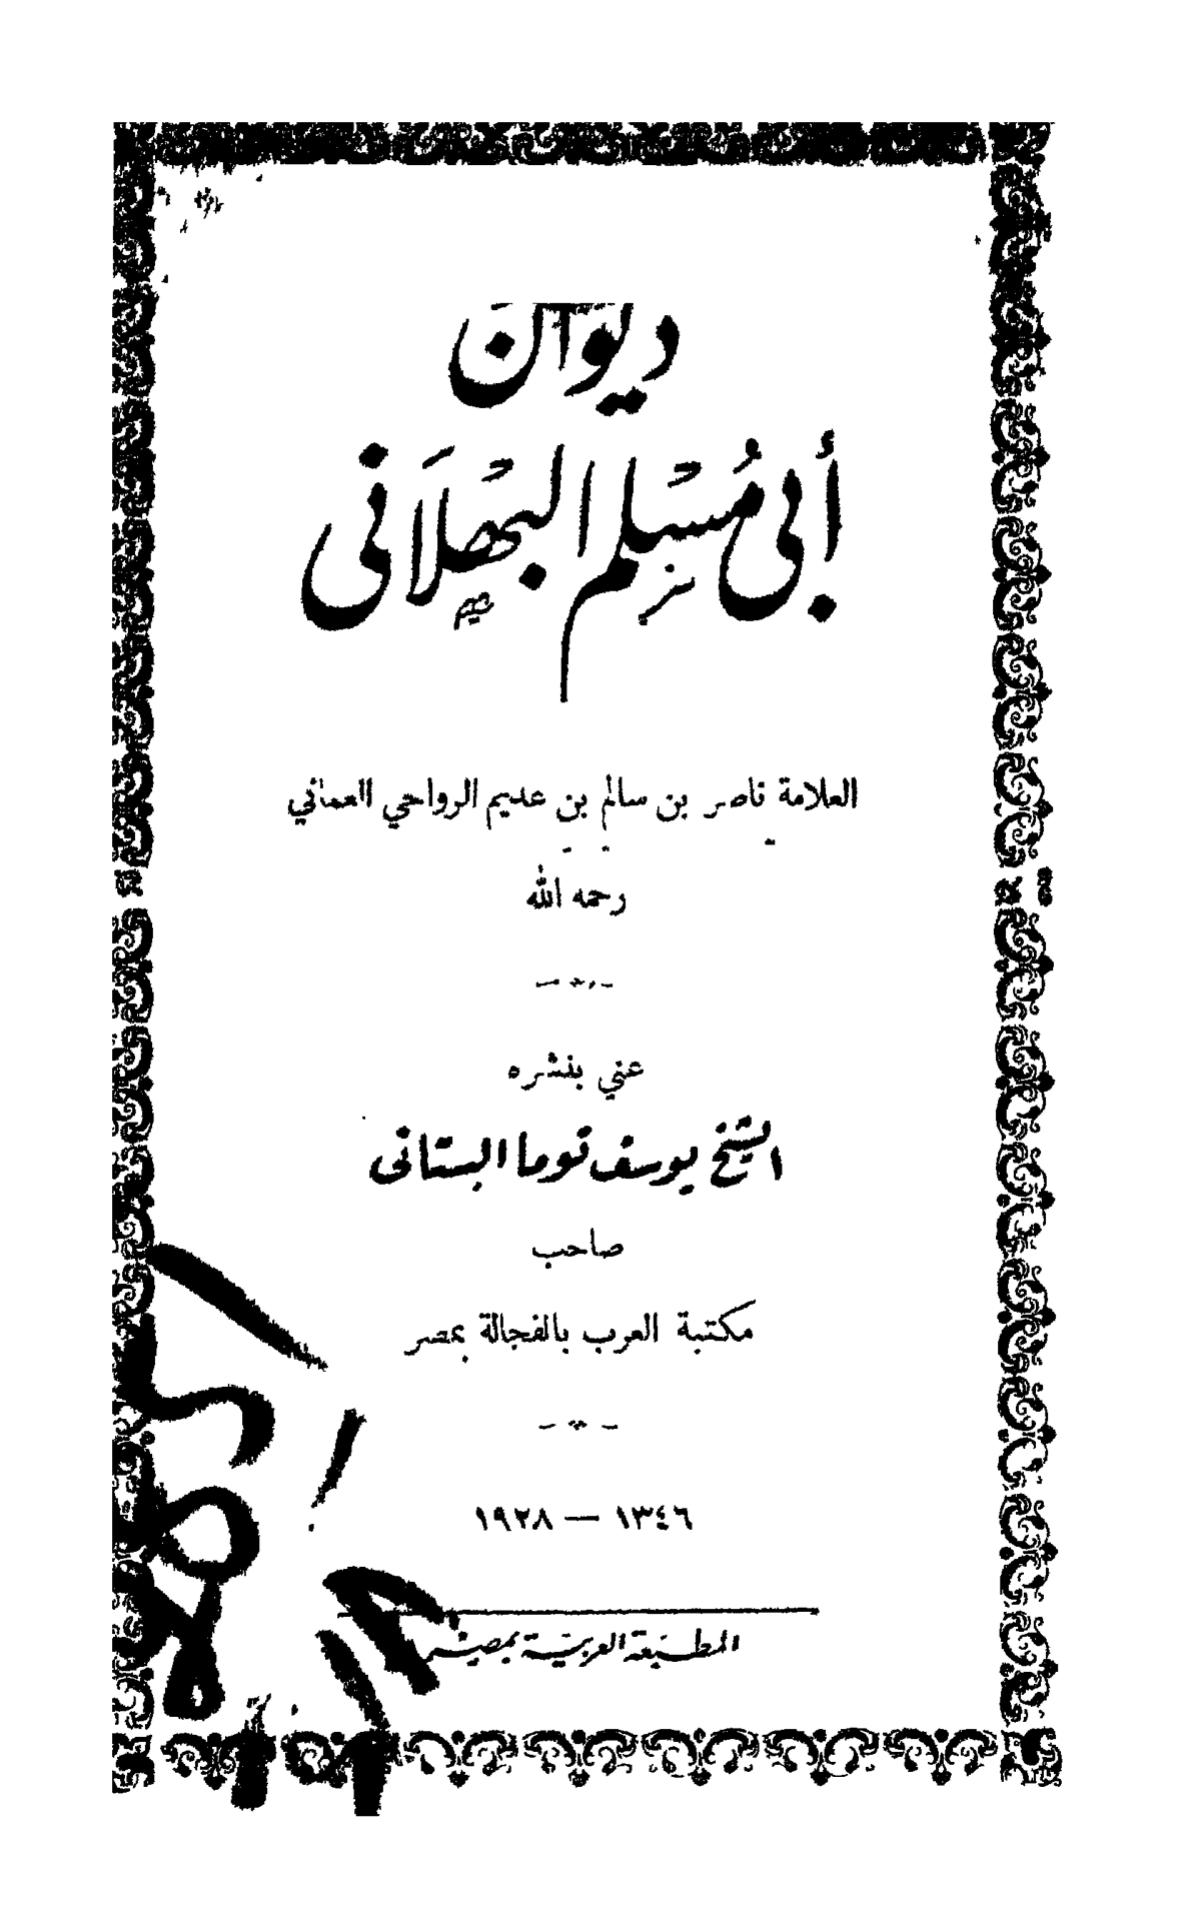 ديوان
أبي مُسْلم البَهْلَانى
العلامة ناصر بن سالم بن عديم الرواحي العماني
رحمه الله
عني بنشره
الشيخ يوسف توما البستانى
صاحب
مكتبة العرب بالفجالة بمصر
١٣٤٦ — ١٩٢٨
المطبعة العربية بمصر